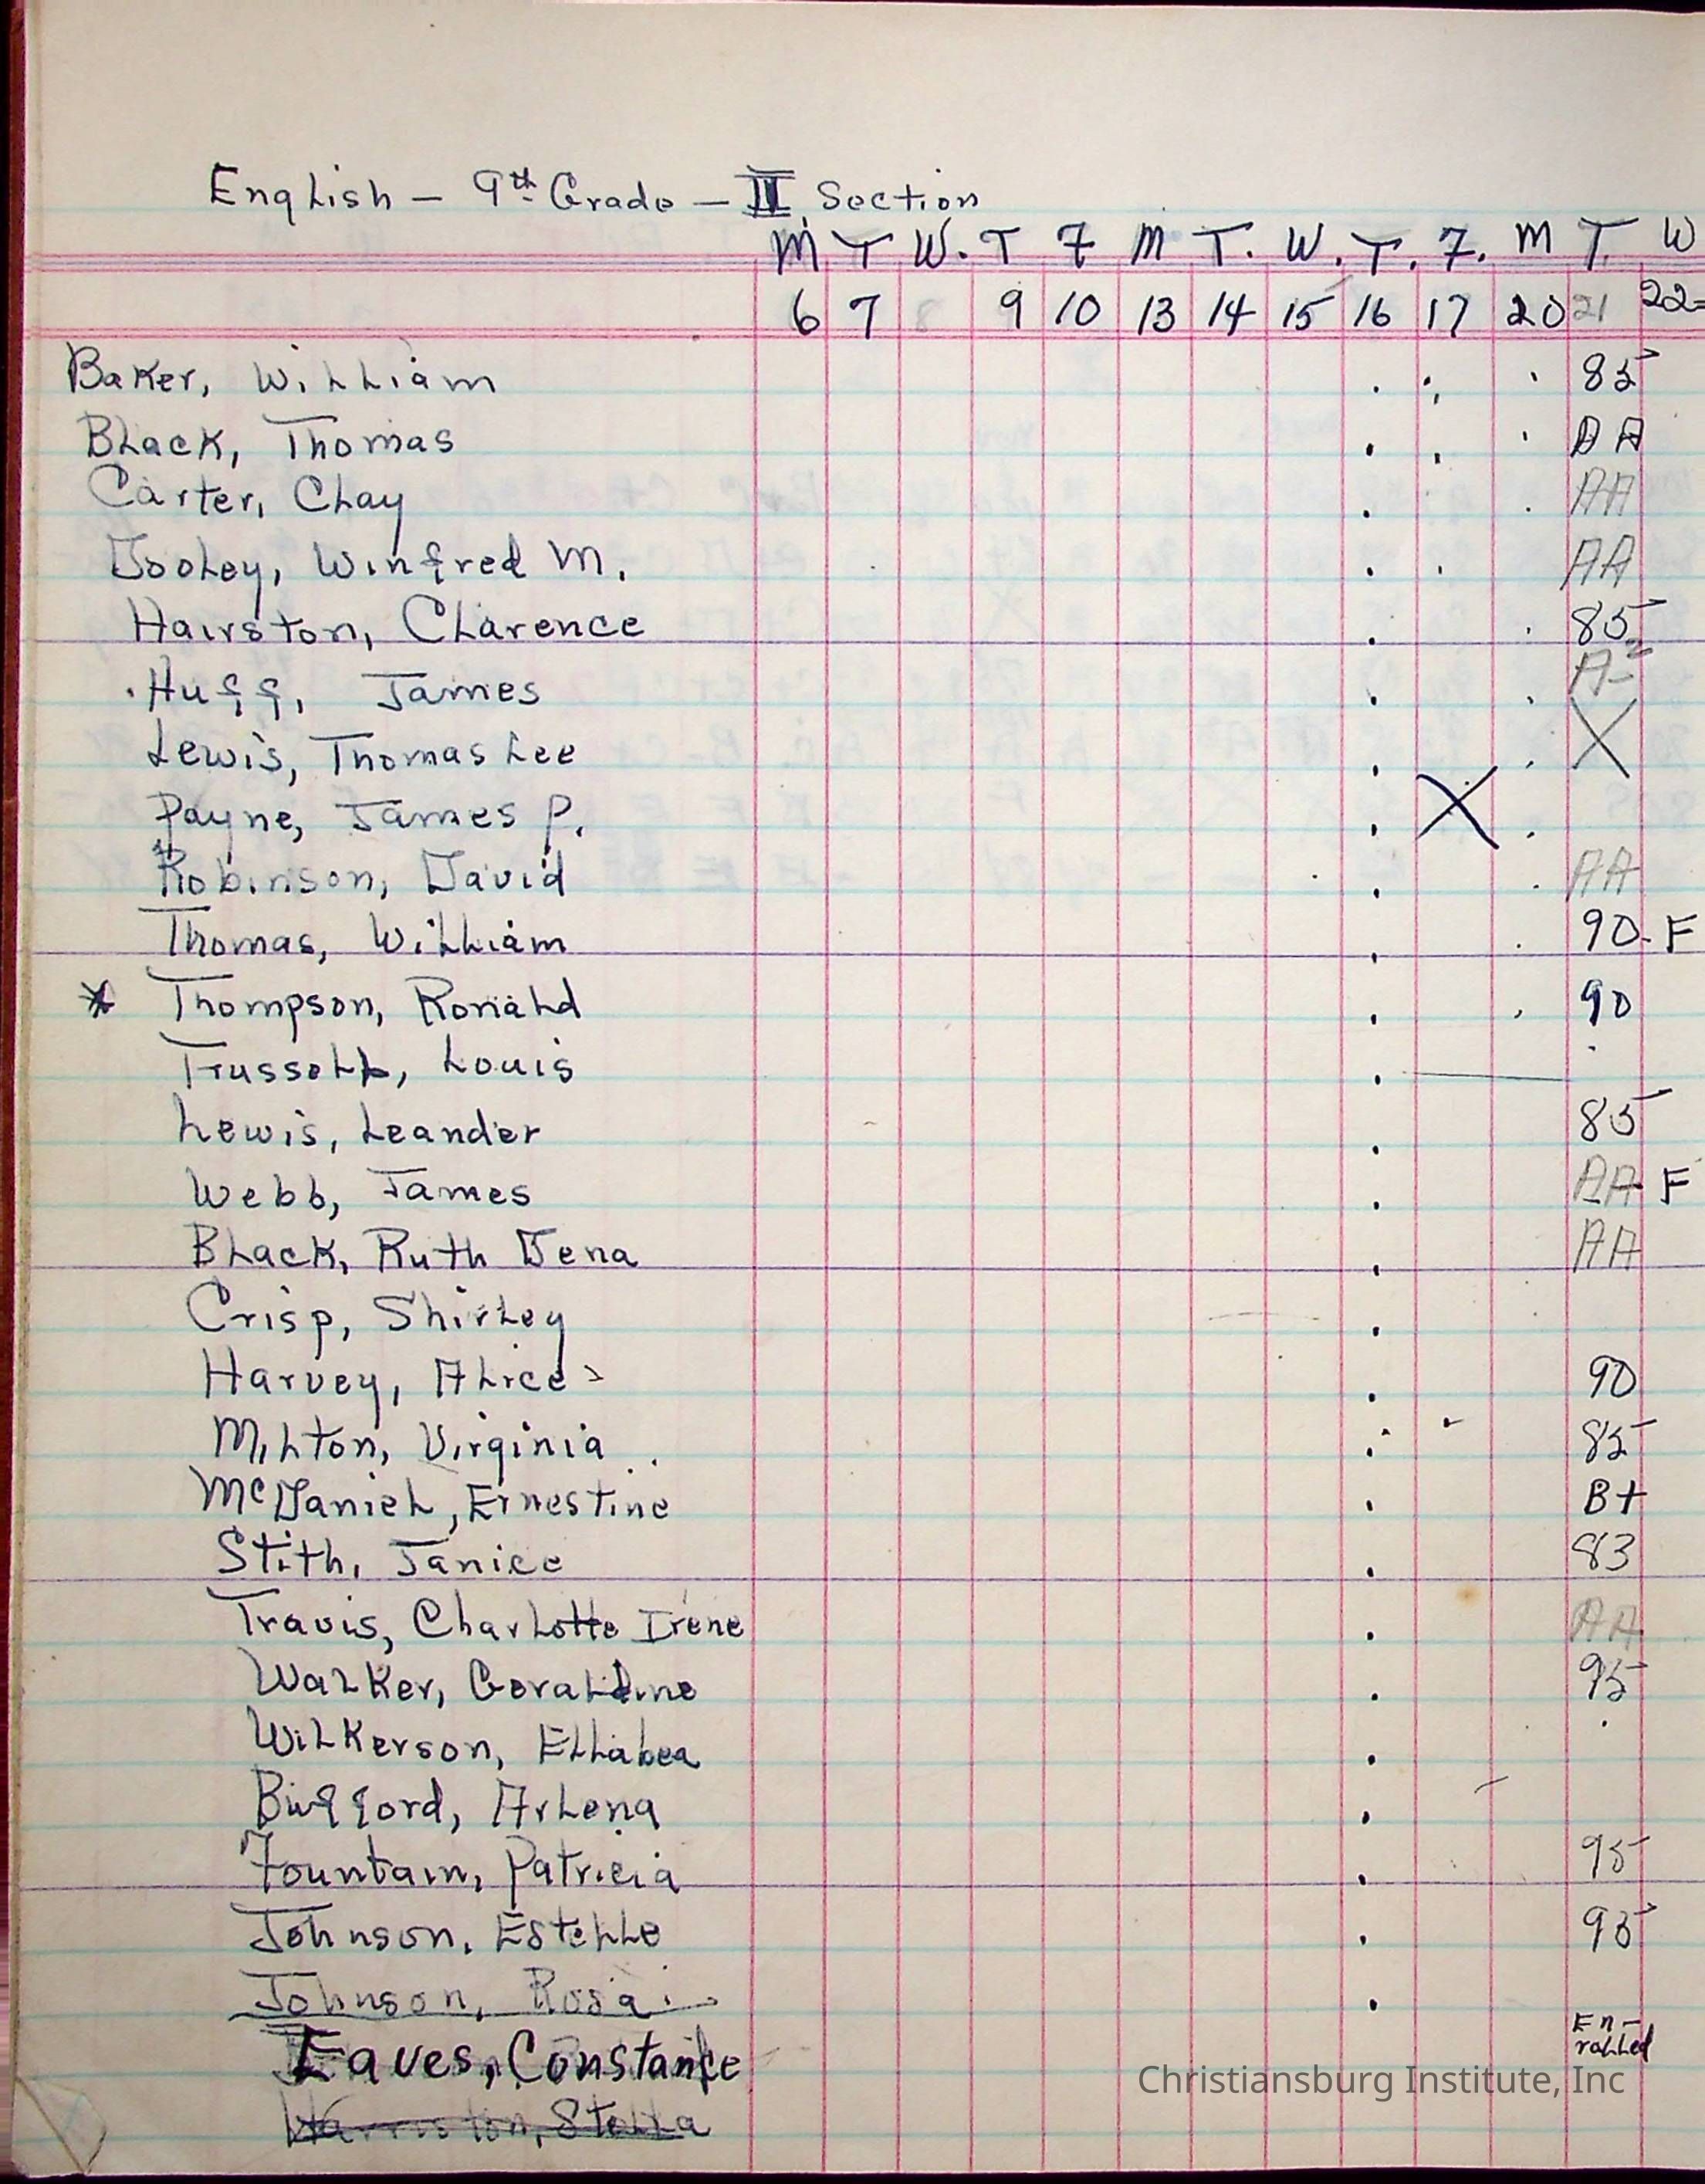 English - 9th Grade - II Section
M T W. T F M T. W. T. F. M T. W
6 7 8 9 10 13 14 15 16 17 20 21 22
Baker, William 85
Black, Thomas AA
Carter, Clay AA
Dooley, Winfred M. AA
Hairston, Clarence 85
Huff, James A-
Lewis, Thomas Lee X
Payne, James P. X
Robinson, David AA
Thomas, William 90 - F
* Thompson, Ronald 90
Trussell, Louis
Lewis, Leander 85
Webb, James AA F
Black, Ruth Dena AA
Crisp, Shirley
Harvey, Alice 90
Milton, Virginia 85
McDaniel, Ernestine B+
Stith, Janice 83
Travis, Charlotte Irene AA
Walker, Geraldine 95
Wilkerson, Ellabea
Bufford, Arlena
Fountain, Patricia 95
Johnson, Estelle 95
Johnson, Rosa
Eaves, Constance En-
rolled
Christiansburg Institute, Inc
Stella